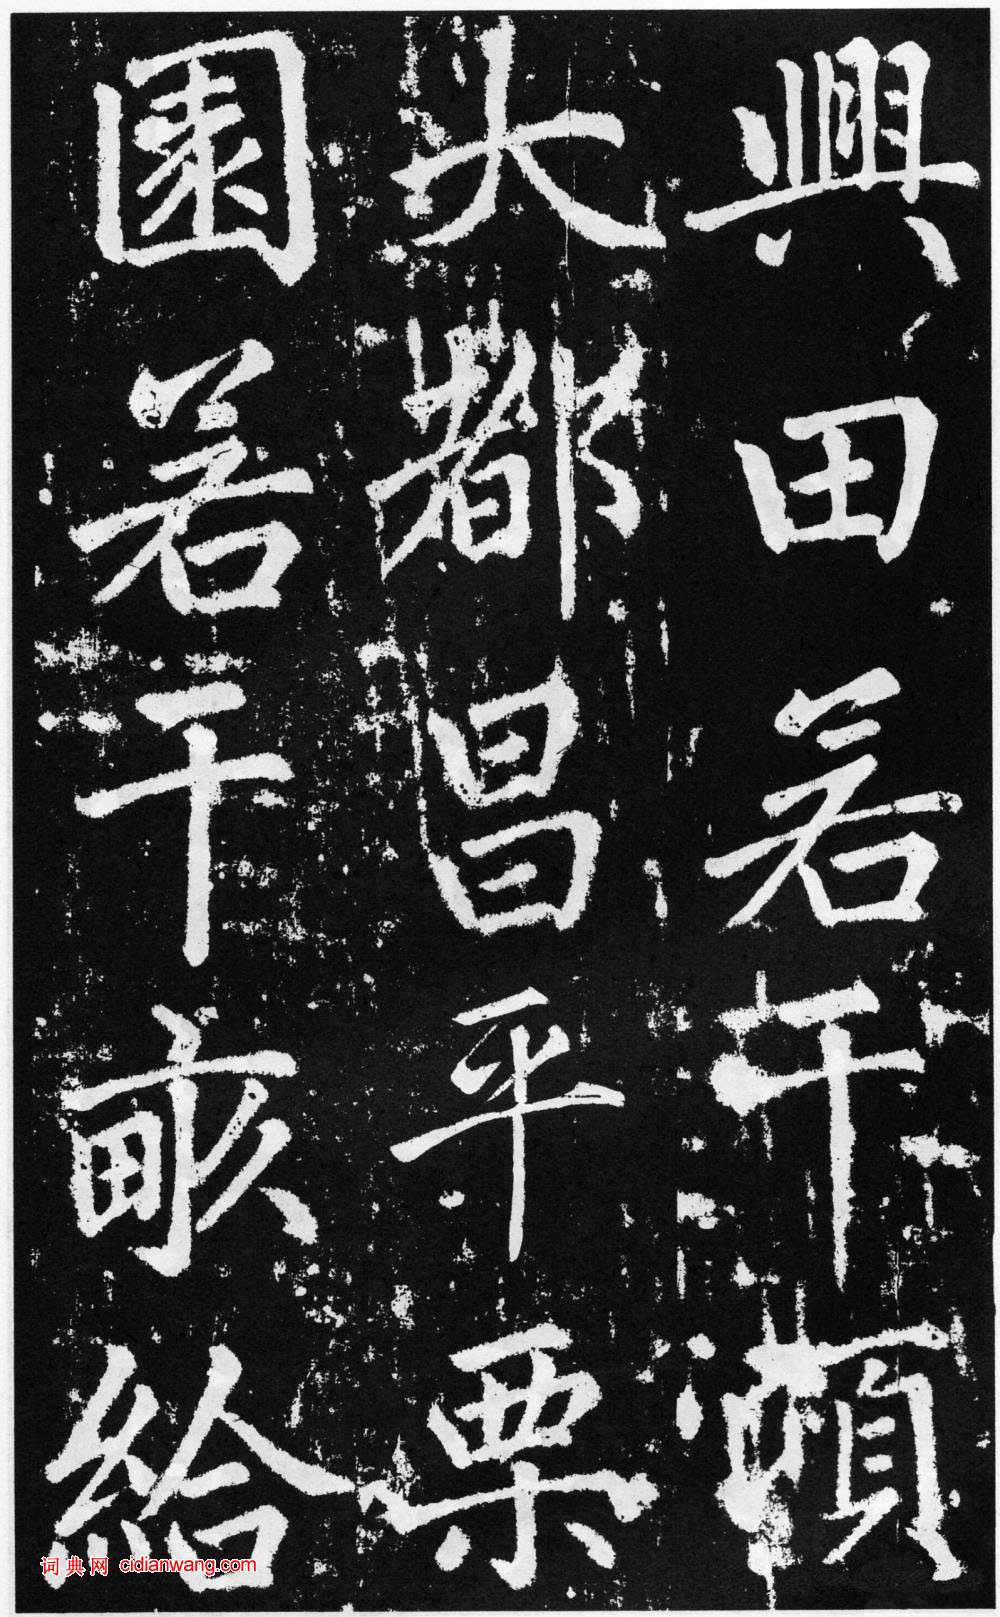 興田若干頃
大都昌平栗
園若干畝給
词典网 cidianwang.com